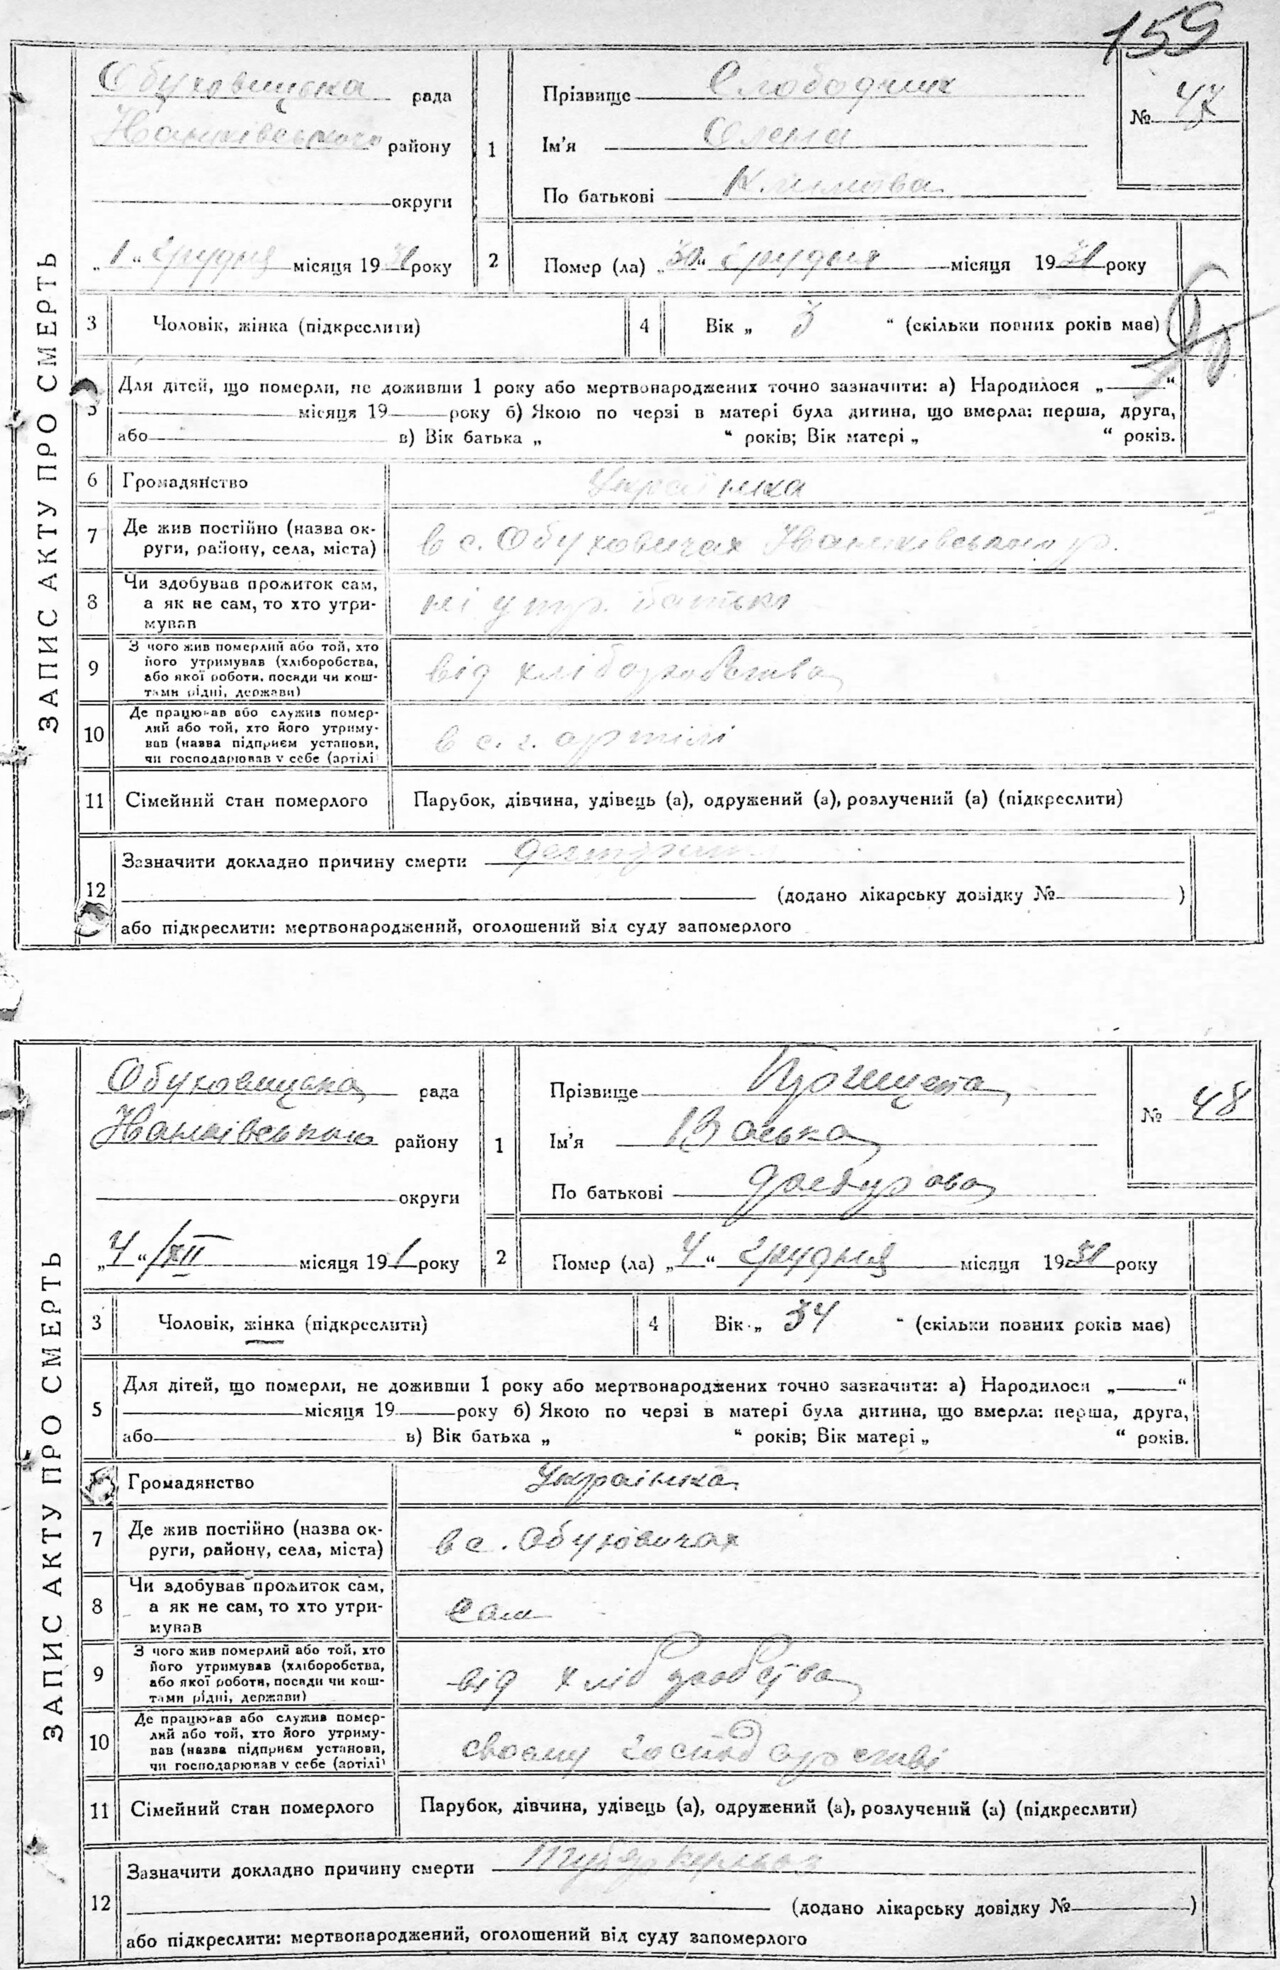 159
ЗАПИС АКТУ ПРО СМЕРТЬ
Обуховицька рада
Іванківського району
округи
„1“ грудня місяця 1931 року
1
Прізвище Слободчик
Ім'я Олена
По батькові Климова
№ 47
2
Помер (ла) „30“ грудня місяця 1931 року
3 Чоловік, жінка (підкреслити)
4 Вік „ 3 “ (скільки повних років має)
5
Для дітей, що померли, не доживши 1 року або мертвонароджених точно зазначити: а) Народилося „ “
місяця 19 року б) Якою по черзі в матері була дитина, що вмерла: перша, друга,
або в) Вік батька „ “ років; Вік матері „ “ років.
6 Громадянство Українка
7 Де жив постійно (назва ок-
руги, району, села, міста) в с. Обуховичах Іванківського р.
8 Чи здобував прожиток сам,
а як не сам, то хто утри-
мував ні утр. батько
9 З чого жив померлий або той, хто
його утримував (хліборобства,
або якої роботи, посади чи кош-
тами рідні, держави) від хліборобства
10 Де працював або служив помер-
лий або той, хто його утриму-
вав (назва підприєм установи,
чи господарював у себе (артілі в с. г. артілі
11 Сімейний стан померлого Парубок, дівчина, удівець (а), одружений (а), розлучений (а) (підкреслити)
12 Зазначити докладно причину смерти
(додано лікарську довідку № )
або підкреслити: мертвонароджений, оголошений від суду запомерлого
ЗАПИС АКТУ ПРО СМЕРТЬ
Обуховицька рада
Іванківського району
округи
„4“ /XII місяця 191 року
1
Прізвище
Ім'я Васька
По батькові
№ 48
2
Помер (ла) „4“ грудня місяця 1931 року
3 Чоловік, жінка (підкреслити)
4 Вік „ 34 “ (скільки повних років має)
5
Для дітей, що померли, не доживши 1 року або мертвонароджених точно зазначити: а) Народилося „ “
місяця 19 року б) Якою по черзі в матері була дитина, що вмерла: перша, друга,
або в) Вік батька „ “ років; Вік матері „ “ років.
Громадянство Українка
7 Де жив постійно (назва ок-
руги, району, села, міста) в с. Обуховичах
8 Чи здобував прожиток сам,
а як не сам, то хто утри-
мував сам
9 З чого жив померлий або той, хто
його утримував (хліборобства,
або якої роботи, посади чи кош-
тами рідні, держави) від хліборобства
10 Де працював або служив помер-
лий або той, хто його утриму-
вав (назва підприєм установи,
чи господарював у себе (артілі) своєму господарстві
11 Сімейний стан померлого Парубок, дівчина, удівець (а), одружений (а), розлучений (а) (підкреслити)
12 Зазначити докладно причину смерти туберкульоз
(додано лікарську довідку № )
або підкреслити: мертвонароджений, оголошений від суду запомерлого